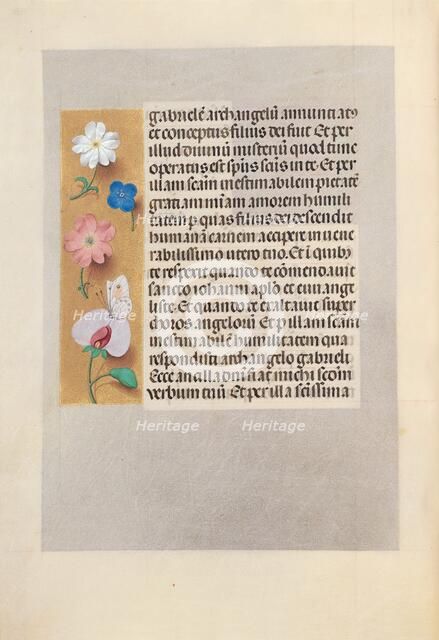 gabrielē archangelū annuntiatꝰ
et conceptus filius dei fuit Et per
illud diuinū misteriū quod tūnc
operatus est spūs scūs in te Et per
illam scām inestimabilem pietatē
gratiam miām amorem humili
tatem p quas filius dei descendit
humanā carnem accipere in uene
rabilissimo utero tuo Et ī quibꝰ
te respexit quando te cōmendauit
sancto iohanni aplo et euange
liste Et quando te exaltauit super
choros angeloū Et p illam scām
inestimabilē humilitatem qua
respondisti archangelo gabrieli
Ecce ancilla dnī fiat michi scdm
verbum tuū Et per illa scissima
Heritage
Heritage
Heritage
Heritage
Heritage
Heritage